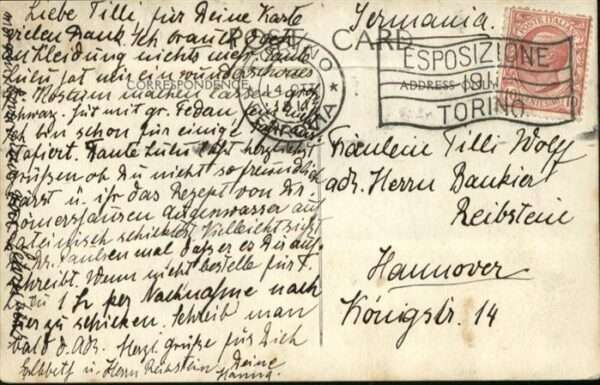 Liebe Tilli, für Deine Karte
vielen Dank. Ich brauche doch
an Kleidung nichts mehr. Tante
Lulu hat mir ein wunderschönes
Kostüm machen lassen
schwarz. Hut mit gr. Federn
ich bin schon für einige
tafiert. Tante Lulu läßt herzlichst
grüßen ob Du nicht so freundlich
wärst u. ihr das Rezept von Dr.
Römershausen Augenwasser auf
Lateinisch schickst. Vielleicht
Dr. Paulsen mal daß er es Dir auf-
schreibt. Wenn nicht bestelle für T.
Lu 1 per Nachnahme nach
hier zu schicken. Schreib man
bald d. Adr. Herzl. Grüße für Dich
Elsbeth u. Herrn Reibstein. Deine
POST CARD
CORRESPONDENCE
ADDRESS ONLY
TORINO
FERROVIA
ESPOSIZIONE
1911
TORINO
POSTE ITALIANE
10
Germania.
Fräulein Tilli Wolff
adr. Herrn Bankier
Reibstein
Hannover
Königstr. 14